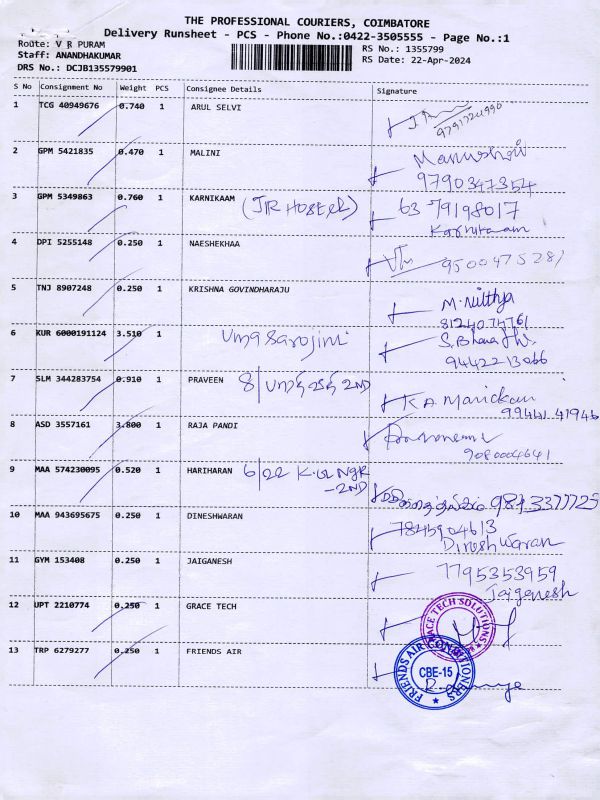 THE PROFESSIONAL COURIERS, COIMBATORE
Delivery Runsheet - PCS - Phone No.:0422-3505555 - Page No.:1
Route: V R PURAM
Staff: ANANDHAKUMAR
DRS No.: DCJB135579901
RS No.: 1355799
RS Date: 22-Apr-2024
S No Consignment No Weight PCS Consignee Details Signature
1 TCG 40949676 0.740 1 ARUL SELVI
2 GPM 5421835 0.470 1 MALINI
9790347354
3 GPM 5349863 0.760 1 KARNIKAAM 63 79198017
Karnikaam
4 DPI 5255148 0.250 1 NAESHEKHAA 9500475281
5 TNJ 8907248 0.250 1 KRISHNA GOVINDHARAJU M. Nithya
8124074761
6 KUR 6000191124 3.510 1 Uma Sarojini S. Bharathi
9442213066
7 SLM 344283754 0.910 1 PRAVEEN 8 2ND K.A. Manickam
99441 41946
8 ASD 3557161 3.800 1 RAJA PANDI
9080004641
9 MAA 574230095 0.520 1 HARIHARAN 6/22 K.G NGR
-2ND
10 MAA 943695675 0.250 1 DINESHWARAN 7845904613
Dineshwaran
11 GYM 153408 0.250 1 JAIGANESH 7795353959
Jaiganesh
12 UPT 2210774 0.250 1 GRACE TECH
ACE TECH SOLUTIONS
13 TRP 6279277 0.250 1 FRIENDS AIR
FRIENDS AIR CONDITIONERS
CBE-15